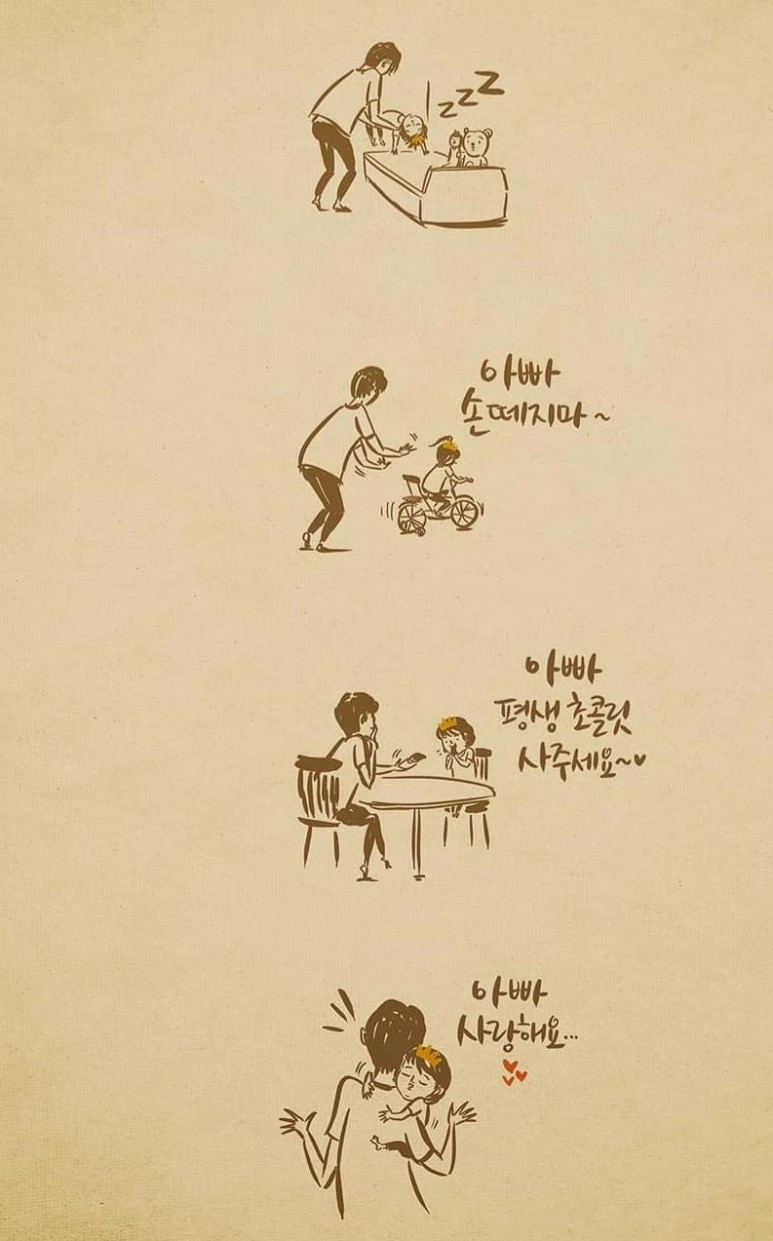 zzz
아빠
손 떼지마~
아빠
평생 초콜릿
사주세요~♥
아빠
사랑해요...